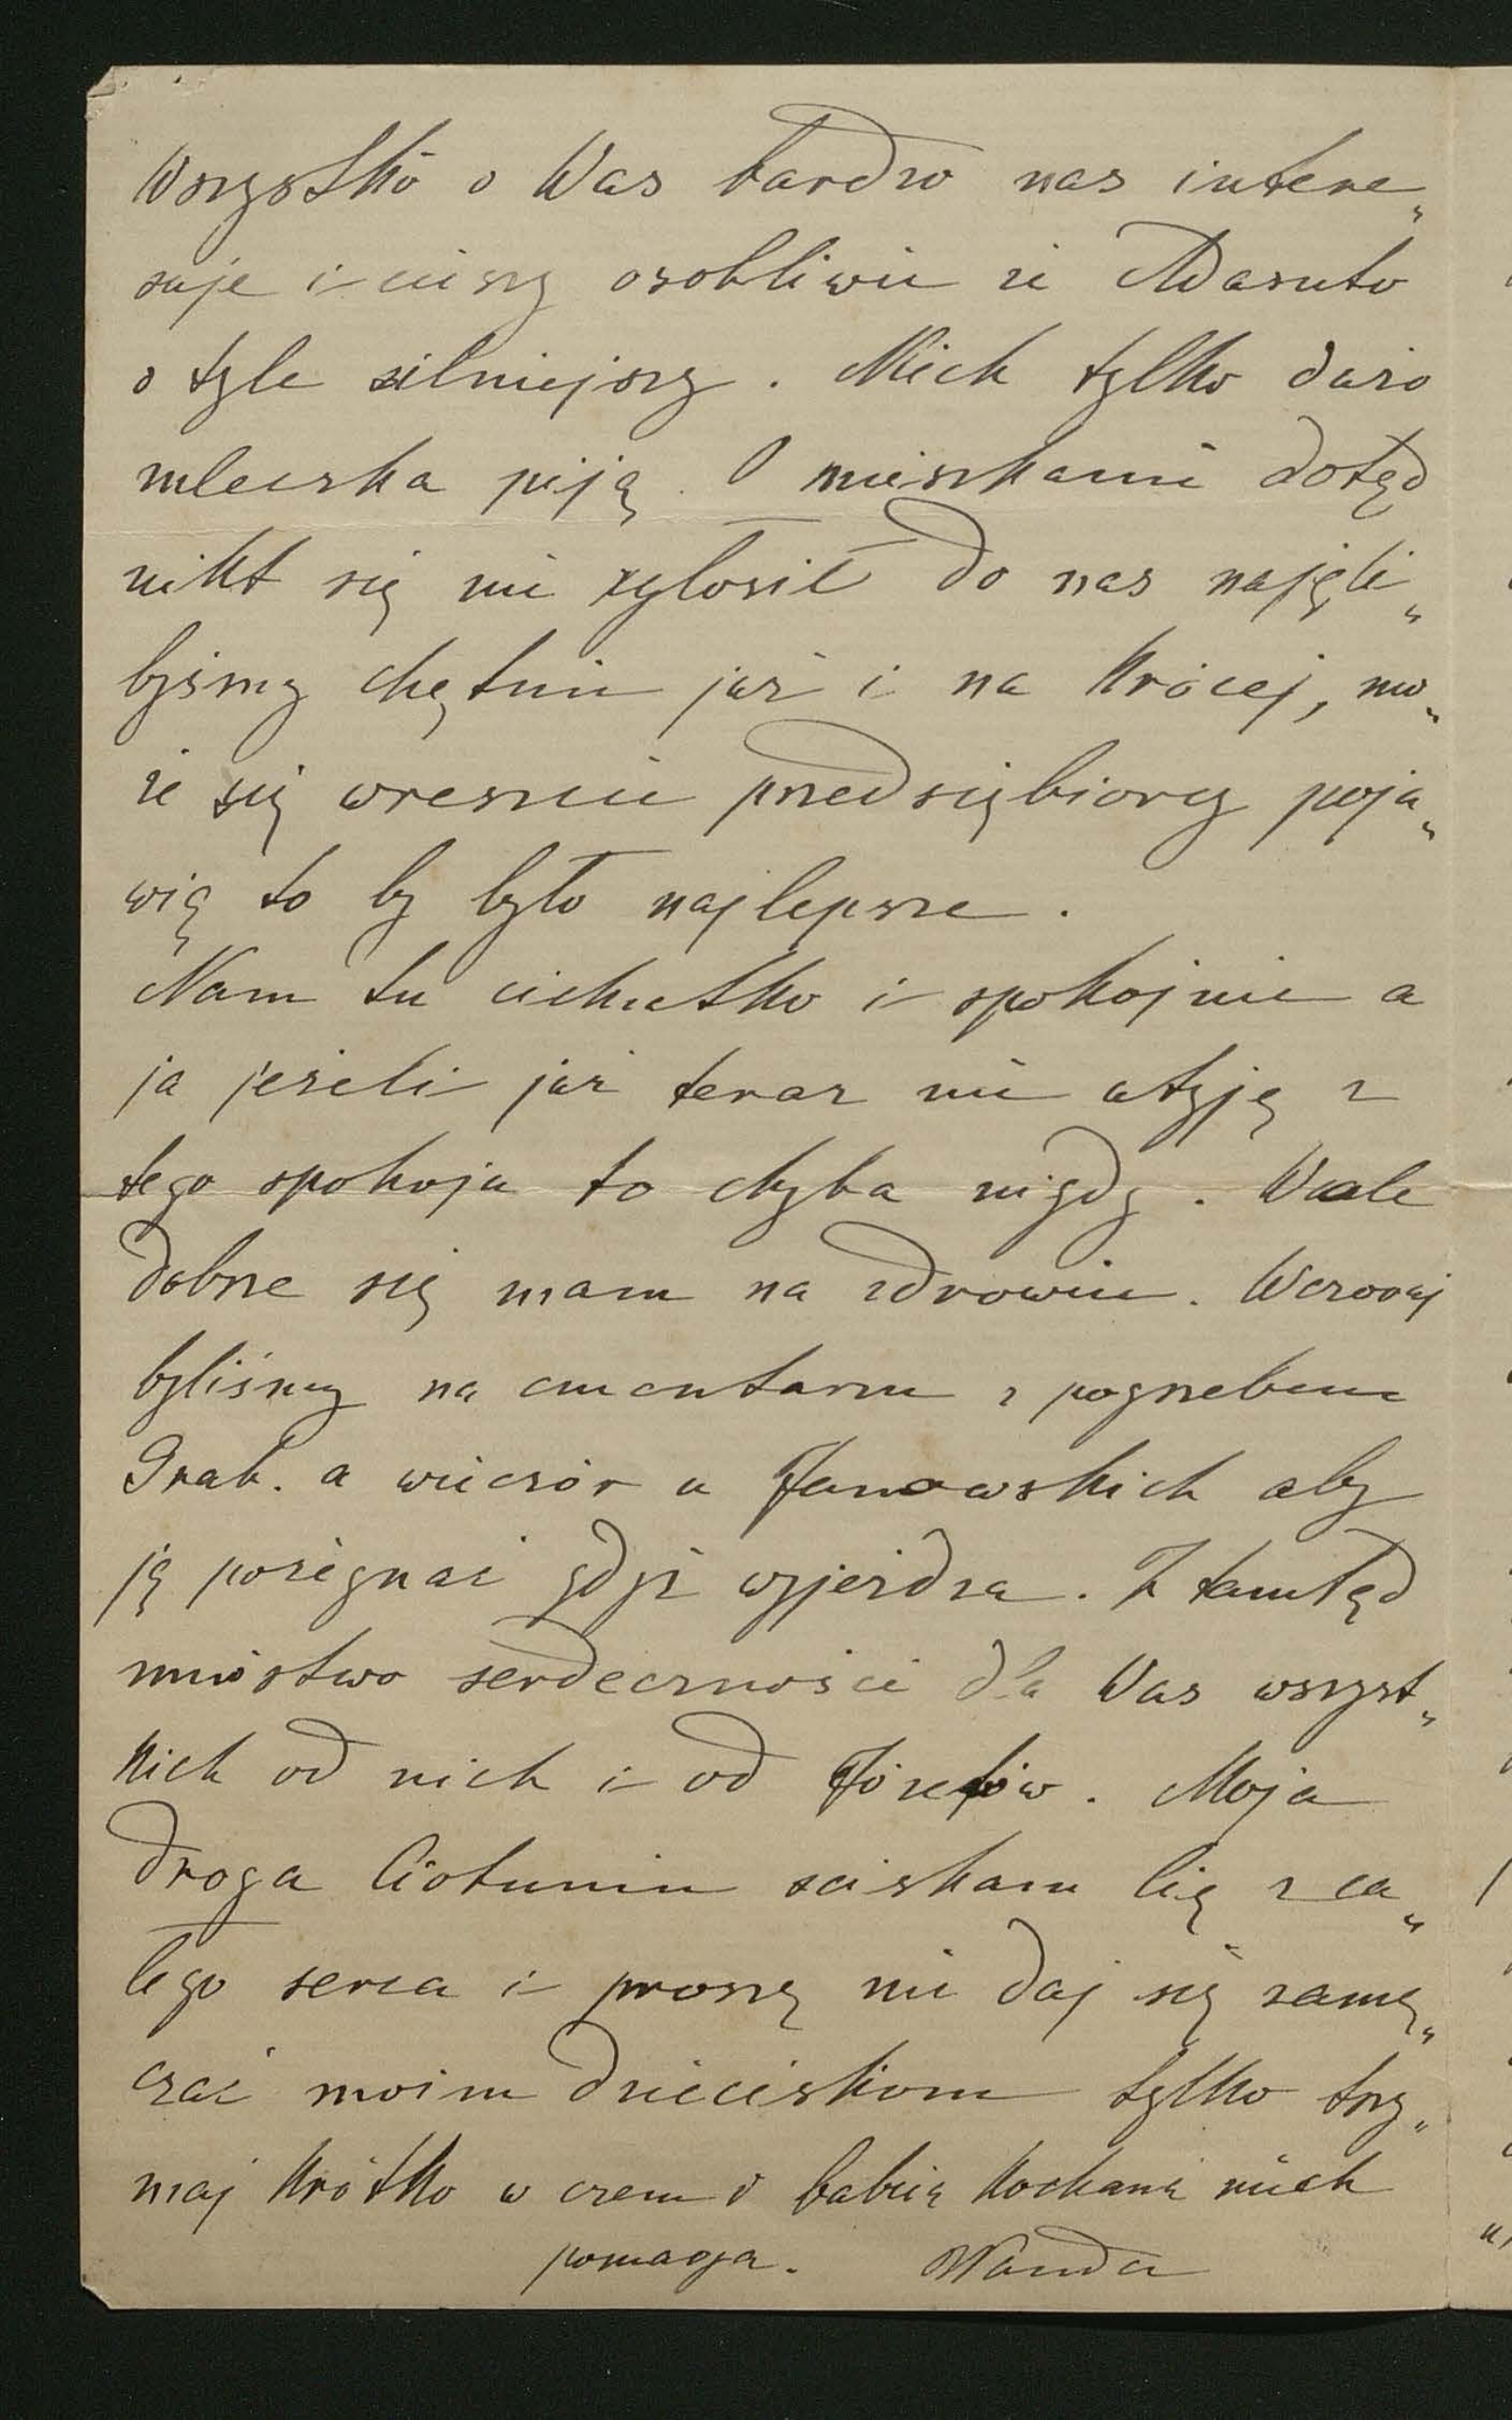 Wszystko o Was bardzo nas intere„
suje i cieszy osobliwie że Adasinto
o tyle silniejszy. Niech tylko dużo
mleczka piją. O mieszkanie dotąd
nikt się nie zgłosił do nas najęli„
byśmy chętnie już i na krócej, mo„
że się wreszcie przedsiębiorcy poja„
wią to by było najlepsze.
Nam tu cichutko i spokojnie a
ja jeżeli już teraz nie utyję z
tego spokoju to chyba nigdy. Wcale
dobrze się mam na zdrowiu. Wczoraj
byliśmy na cmentarzu z pogrzebem
Grab. a wieczór u Janowskich aby
ją pożegnać gdyż wyjeżdża. Z tamtąd
mnóstwo serdeczności dla Was wszyst„
kich od nich i od Józefów. Moja
droga Ciotuniu sciskam Cię z ca„
łego serca i proszę nie daj się zamę„
czać moim dzieciskom tylko trzy„
maj krótko w czem babcia kochana niech
pomaga. Wanda